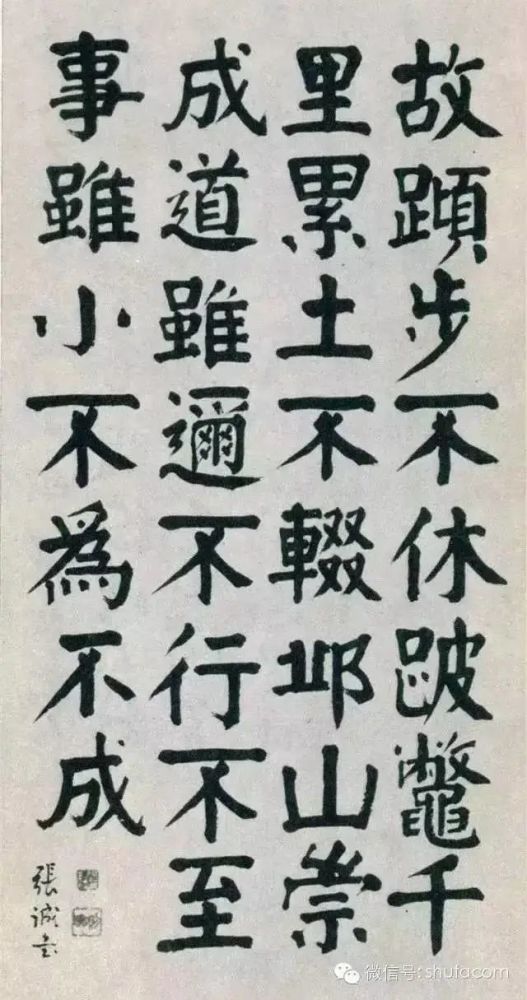 故蹞步不休跛鼈千
里累土不輟邱山崇
成道雖邇不行不至
事雖小不為不成
張誠書
微信号:shufacom